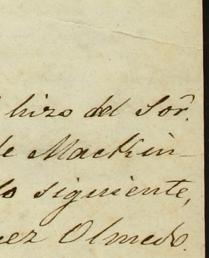 hizo del Sor.
de Mackin-
lo siguiente,
ez Olmedo.